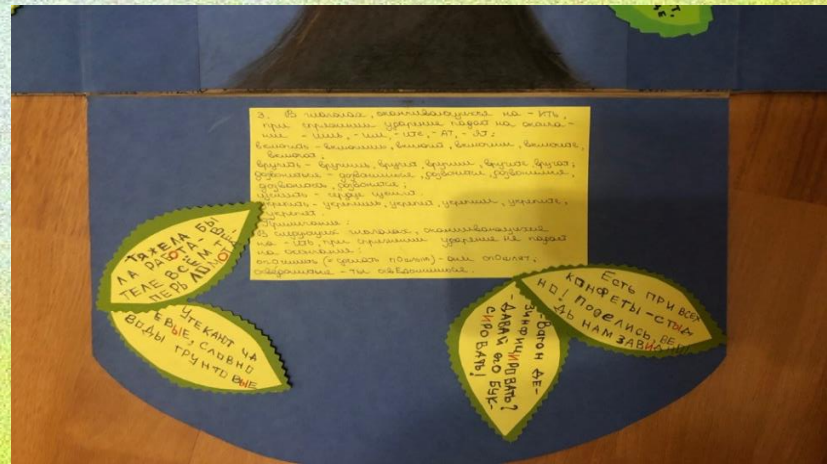 3. В глаголах, оканчивающихся на -ИТЬ,
при спряжении ударение падает на оконча-
ние -ИШЬ, -ИМ, -ИТЕ, -АТ, -ЯТ:
включить - включишь, включит, включим, включите,
включат;
вручить - вручишь, вручит, вручим, вручите, вручат;
дозвониться - дозвонишься, дозвонится, дозвонимся,
дозвонитесь, дозвонятся;
щемить - сердце щемит.
укрепить - укрепишь, укрепит, укрепим, укрепите,
укрепят.
Примечание:
В следующих глаголах, оканчивающихся
на -ИТЬ, при спряжении ударение не падает
на окончание:
опОшлить (= сделать пОшлым) - они опОшлят;
осведомиться - ты освЕдомишься.
ТЯЖЕЛА БЫ
ЛА РАБОТА-
ТЕЛЕ ВОЗИМ ТЕ
ПЕРЬ ЛОМОТЬ
УТЕКАЮТ ЧА
ЕВЫЕ, СЛОВНО
ВОДЫ ГРУНТОВЫЕ
- ВАГОН ДЕ-
ЗИНФИЦИРОВАТЬ?
- ДАВАЙ ЕГО БУК-
СИРОВАТЬ!
ЕСТЬ ПРИ ВСЕХ
КОНФЕТЫ - СТЫД
НО! ПОДЕЛИСЬ, ВЕ
ДЬ НАМ ЗАВИДНО